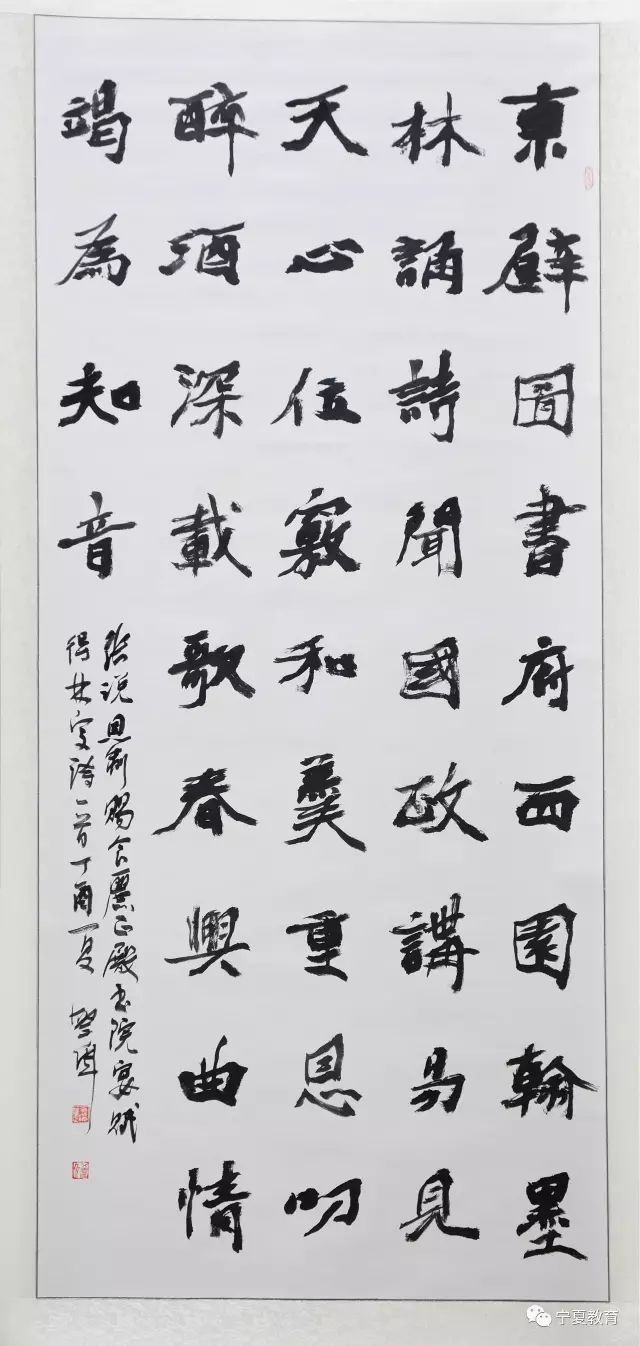 東壁圖書府西園翰墨
林誦詩聞國政講易見
天心位竊和羹重恩叨
醉酒深載歌春興曲情
竭為知音
张说恩制赐食麗正殿书院宴赋
得林字诗一首丁酉夏
宁夏教育